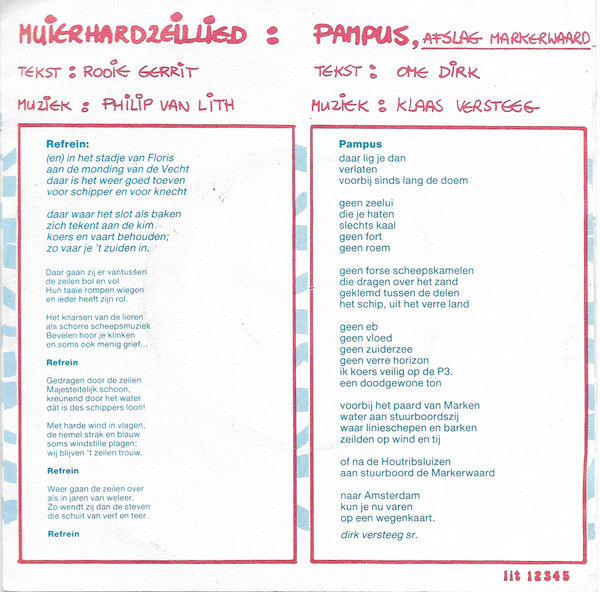 MUIERHARDZEILLIED :
TEKST : ROOIE GERRIT
MUZIEK : PHILIP VAN LITH
Refrein:
(en) in het stadje van Floris
aan de monding van de Vecht
daar is het weer goed toeven
voor schipper en voor knecht
daar waar het slot als baken
zich tekent aan de kim
koers en vaart behouden;
zo vaar je 't zuiden in.
Daar gaan zij er vantussen
de zeilen bol en vol
Hun taaie rompen wiegen
en ieder heeft zijn rol.
Het knarsen van de lieren
als schorre scheepsmuziek
Bevelen hoor je klinken
en soms ook menig grief...
Refrein
Gedragen door de zeilen
Majesteitelijk schoon,
kreunend door het water
dat is des schippers loon!
Met harde wind in vlagen,
de hemel strak en blauw
soms windstille plagen;
wij blijven 't zeilen trouw.
Refrein
Weer gaan de zeilen over
als in jaren van weleer.
Zo wendt zij dan de steven
die schuit van verf en teer.
Refrein
PAMPUS, AFSLAG MARKERWAARD
TEKST : OME DIRK
MUZIEK : KLAAS VERSTEEG
Pampus
daar lig je dan
verlaten
voorbij sinds lang de doem
geen zeelui
die je haten
slechts kaal
geen fort
geen roem
geen forse scheepskamelen
die dragen over het zand
geklemd tussen de delen
het schip, uit het verre land
geen eb
geen vloed
geen zuiderzee
geen verre horizon
ik koers veilig op de P3.
een doodgewone ton
voorbij het paard van Marken
water aan stuurboordszij
waar linieschepen en barken
zeilden op wind en tij
of na de Houtribsluizen
aan stuurboord de Markerwaard
naar Amsterdam
kun je nu varen
op een wegenkaart.
dirk versteeg sr.
lit 12345